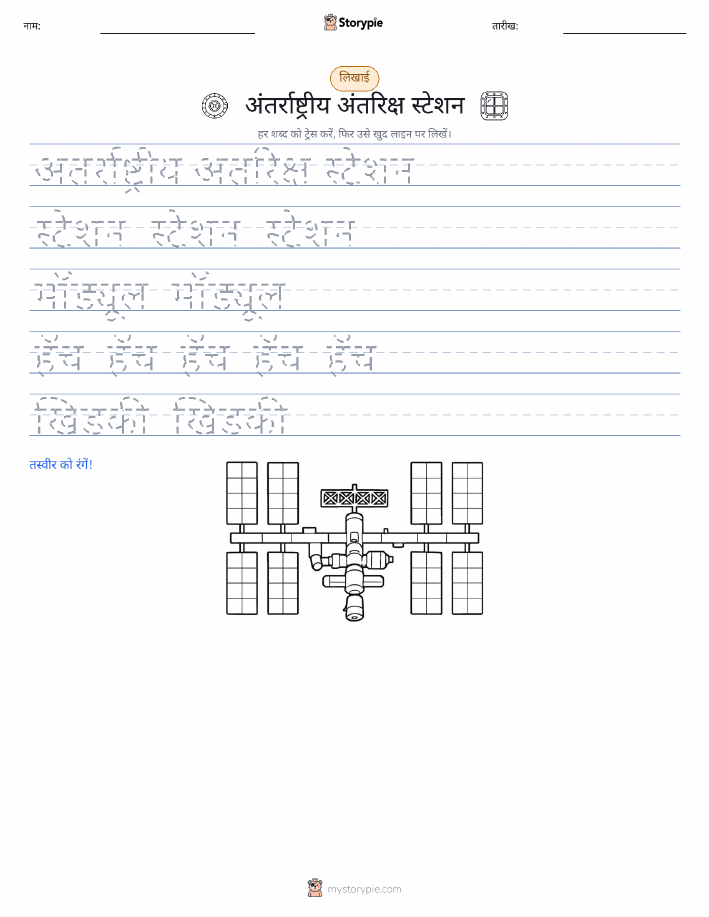 नाम:
Storypie
तारीख:
लिखाई
अंतर्राष्ट्रीय अंतरिक्ष स्टेशन
हर शब्द को ट्रेस करें, फिर उसे खुद लाइन पर लिखें।
अंतर्राष्ट्रीय अंतरिक्ष स्टेशन
स्टेशन स्टेशन स्टेशन
मॉड्यूल मॉड्यूल
हॅच हॅच हॅच हॅच हॅच
खिडकी खिडकी
तस्वीर को रंगें!
mystorypie.com